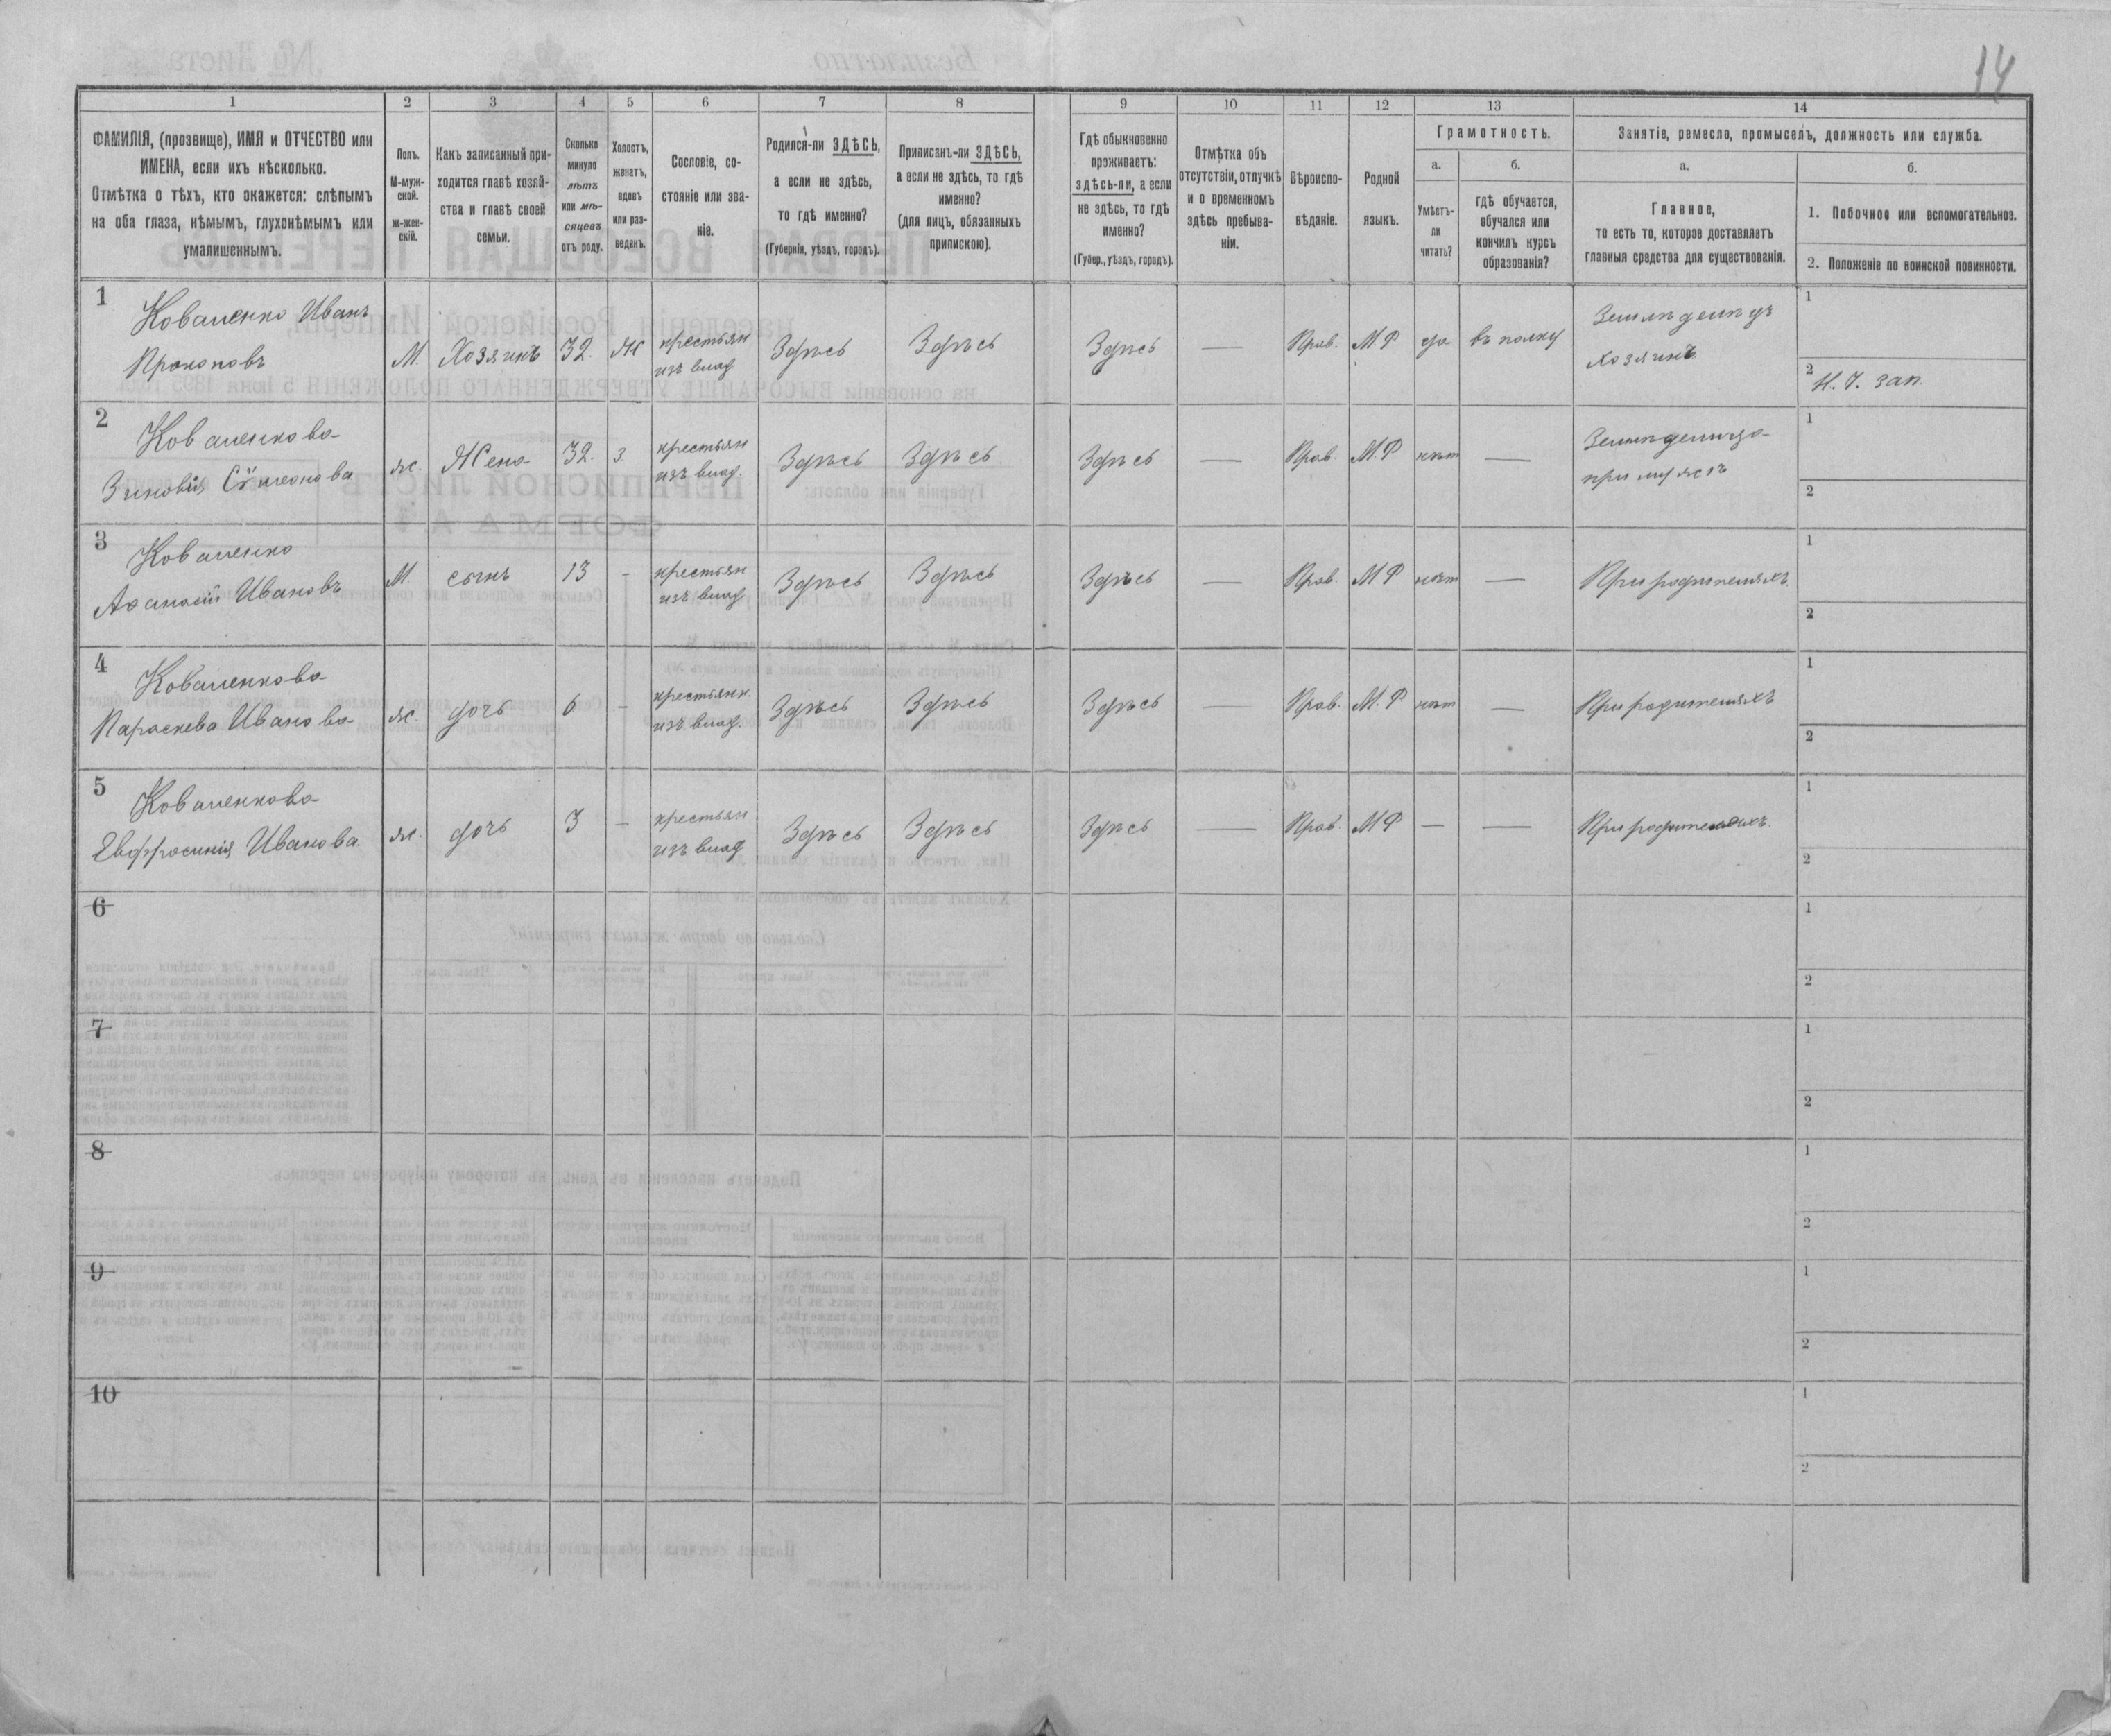 14
1 2 3 4 5 6 7 8 9 10 11 12 13 14
ФАМИЛІЯ, (прозвище), ИМЯ и ОТЧЕСТВО или
ИМЕНА, если ихъ нѣсколько.
Отмѣтка о тѣхъ, кто окажется: слѣпымъ
на оба глаза, нѣмымъ, глухонѣмымъ или
умалишеннымъ.
Полъ.
М-муж-
ской.
ж-жен-
скій.
Какъ записанный при-
ходится главѣ хозяй-
ства и главѣ своей
семьи.
Сколько
минуло
лѣтъ
или мѣ-
сяцевъ
отъ роду.
Холостъ,
женатъ,
вдовъ
или раз-
веденъ.
Сословіе, со-
стояніе или зва-
ніе.
Родился-ли ЗДѢСЬ,
а если не здѣсь,
то гдѣ именно?
(Губернія, уѣздъ, городъ).
Приписанъ-ли ЗДѢСЬ,
а если не здѣсь, то гдѣ
именно?
(для лицъ, обязанныхъ
припискою).
Гдѣ обыкновенно
проживаетъ:
здѣсь-ли, а если
не здѣсь, то гдѣ
именно?
(Губер., уѣздъ, городъ).
Отмѣтка объ
отсутствіи, отлучкѣ
и о временномъ
здѣсь пребыва-
ніи.
Вѣроиспо-
вѣданіе.
Родной
языкъ.
Грамотность.
а.
Умѣетъ-
ли
читать?
б.
гдѣ обучается,
обучался или
кончилъ курсъ
образованія?
Занятіе, ремесло, промыселъ, должность или служба.
а.
Главное,
то есть то, которое доставляетъ
главныя средства для существованія.
б.
1. Побочное или вспомогательное.
2. Положеніе по воинской повинности.
1
Коваленко Иванъ
Прокоповъ
М. Хозяинъ 32. Ж
крестьян
изъ влад
Здѣсь Здѣсь Здѣсь — Прав. М.Р да въ полку
Земледѣлецъ
хозяинъ
1
2 Н. Ч. зап.
2
Коваленкова
Зиновія Сѵмеонова
ж. Жена 32. З
крестьян
изъ влад.
Здѣсь Здѣсь Здѣсь — Прав. М.Р нѣт —
Земледѣлица
при мужѣ
1
2
3
Коваленко
Афанасій Ивановъ
М. сынъ 13 -
крестьян
изъ влад
Здѣсь Здѣсь Здѣсь — Прав. М Р нѣт —
При родителяхъ.
1
2
4
Коваленкова
Параскева Иванова
ж. дочь 6 -
крестьянк.
изъ влад.
Здѣсь Здѣсь Здѣсь — Прав. М.Р нѣт —
При родителяхъ
1
2
5
Коваленкова
Евфросинія Иванова.
ж. дочь 3 —
крестьян
изъ влад
Здѣсь Здѣсь Здѣсь — Прав. М Р — —
При родителяхъ.
1
2
6
1
2
7
1
2
8
1
2
9
1
2
10
1
2